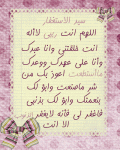 سيد الاستغفار
اللهم انت ربي لااله
الا انت خلقتني وانا عبدك
وانا على عهدك ووعدك
مااستطعت اعوذ بك من
شر ماصنعت وابوء لك
بنعمتك وابوء لك بذنبي
فاغفر لي فانه لايغفر الذنوب
الا انت